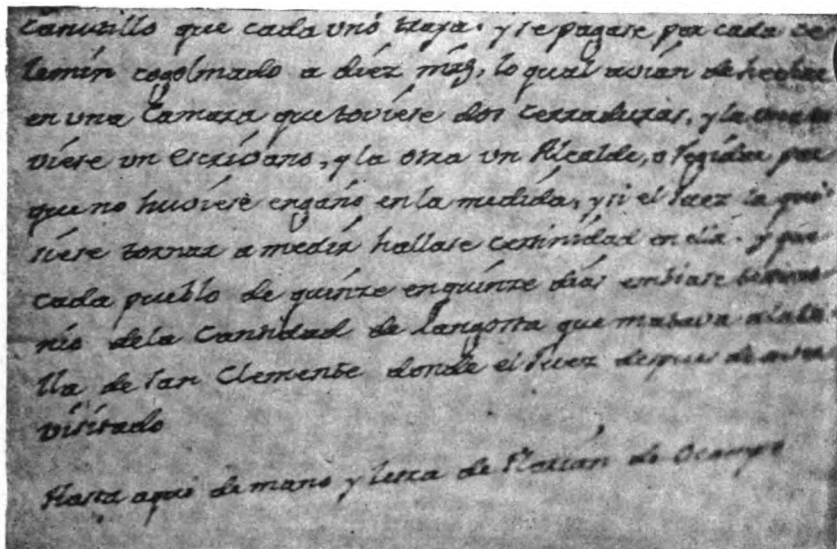 Canutillo que cada uno traxa. y se pagase por cada ce
lemin cogolmado a diez mrs, lo qual avian de hechar
en una Camara que toviese dos cerraduras, y la una tu
viese un escrivano, y la otra un Alcalde, o Regidor por
que no huviese engaño en la medida, y si el Juez la qui
siese tornar a medir hallase certinidad en ella. y que
cada pueblo de quinze en quinze dias embiase testimo
nio de la Cantidad de langosta que matava a la Vi
lla de San Clemente donde el Juez despues de aver
visitado
Hasta aqui de mano y letra de Florián de Ocampo